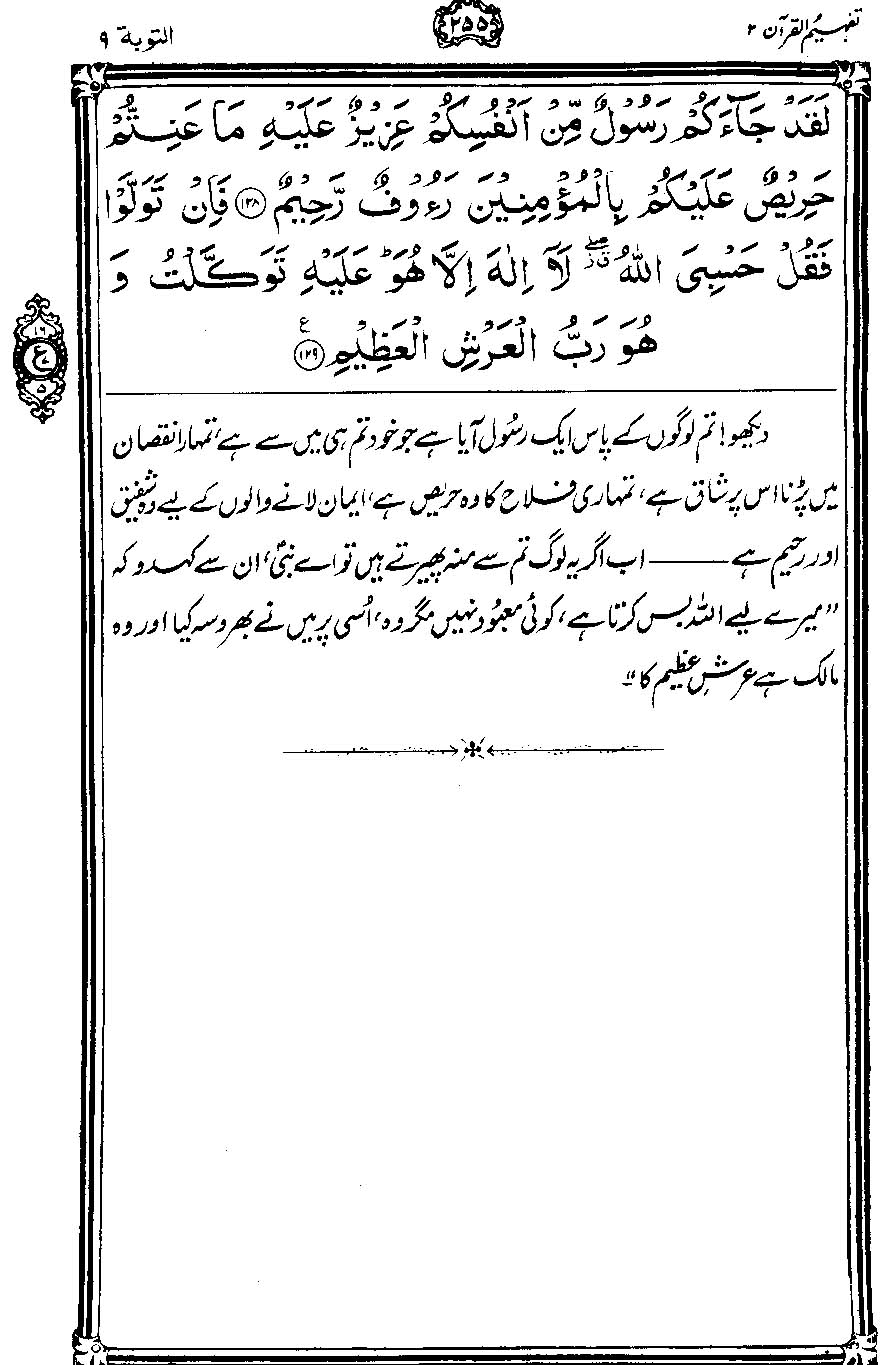 تفہیم القرآن ۲
۲۵۵
التوبة ۹
لَقَدْ جَآءَكُمْ رَسُوْلٌ مِّنْ اَنْفُسِكُمْ عَزِيْزٌ عَلَيْهِ مَا عَنِتُّمْ
حَرِيْصٌ عَلَيْكُمْ بِالْمُؤْمِنِيْنَ رَءُوْفٌ رَّحِيْمٌ ۝۱۲۸ فَاِنْ تَوَلَّوْا
فَقُلْ حَسْبِىَ اللهُ ۖ لَاۤ اِلٰهَ اِلَّا هُوَ ؕ عَلَيْهِ تَوَكَّلْتُ وَ
هُوَ رَبُّ الْعَرْشِ الْعَظِيْمِ ۝۱۲۹ ع
۱۶
ع
۵
دیکھو! تم لوگوں کے پاس ایک رسُول آیا ہے جو خود تم ہی میں سے ہے، تمہارا نقصان
میں پڑنا اس پر شاق ہے، تمہاری فلاح کا وہ حریص ہے، ایمان لانے والوں کے لیے وہ شفیق
اور رحیم ہے ——— اب اگر یہ لوگ تم سے منہ پھیرتے ہیں تو اے نبیؐ، ان سے کہدو کہ
”میرے لیے اللہ بس کرتا ہے، کوئی معبُود نہیں مگر وہ، اُسی پر میں نے بھروسہ کیا اور وہ
مالک ہے عرشِ عظیم کا“